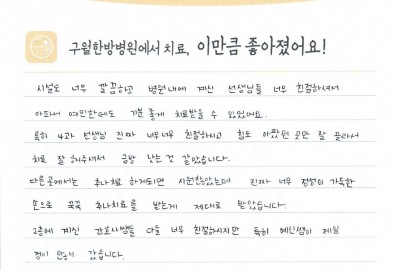 구월한방병원에서 치료, 이만큼 좋아졌어요!
시설도 너무 깔끔하고 병원내에 계신 선생님들 너무 친절하셔서
아파서 예민한데도 기분 좋게 치료받을 수 있었어요.
특히 4과 선생님 진짜 너무너무 친절하시고 침도 아팠던 곳만 잘 골라서
치료 잘 해주셔서 금방 낫는 것 같았습니다.
다른곳에서는 추나치료 하게되면 시원찮았는데 진짜 너무 정성이 가득한
손으로 꾹꾹 추나치료를 받는게 제대로 받았습니다.
2층에 계신 간호사쌤들 다들 너무 친절하시지만 특히 예진쌤이 제일
정이 많이 갔습니다.